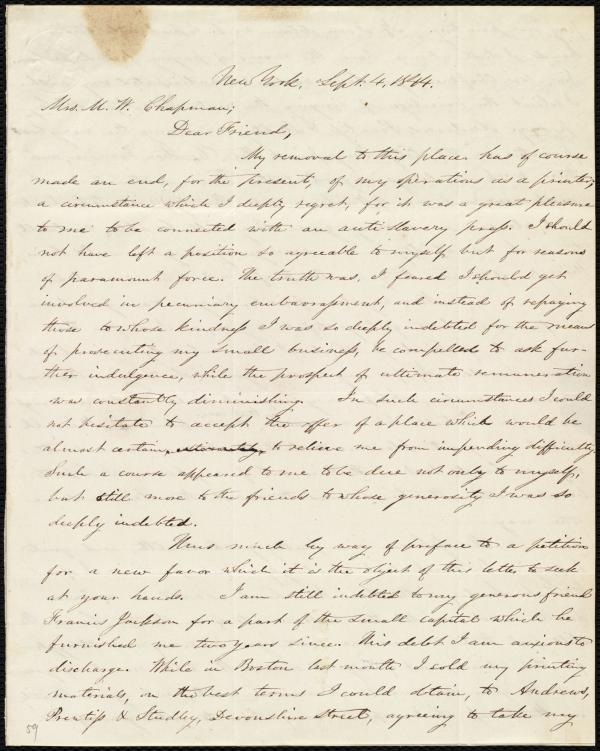 New York, Sept. 4, 1844.
Mrs. M. W. Chapman;
Dear Friend,
My removal to this place has of course
made an end, for the present, of my operations as a printer;
a circumstance which I deeply regret, for it was a great pleasure
to me to be connected with an anti slavery press. I should
not have left a position so agreeable to myself but for reasons
of paramount force. The truth was, I feared I should get
involved in pecuniary embarrassment, and instead of repaying
those to whose kindness I was so deeply indebted for the means
of prosecuting my small business, be compelled to ask fur-
ther indulgence, while the prospect of ultimate remuneration
was constantly diminishing. In such circumstances I could
not hesitate to accept the offer of a place which would be
almost certain, to relieve me from impending difficulty.
Such a course appeared to me to be due not only to myself,
but still more to the friends to whose generosity I was so
deeply indebted.
Thus much by way of preface to a petition
for a new favor which it is the object of this letter to seek
at your hands. I am still indebted to my generous friend
Francis Jackson for a part of the small capital which he
furnished me two years since. This debt I am anxious to
discharge. While in Boston last month I sold my printing
materials, on the best terms I could obtain, to Andrews,
Prentiss & Studley, Devonshire Street, agreeing to take my
59